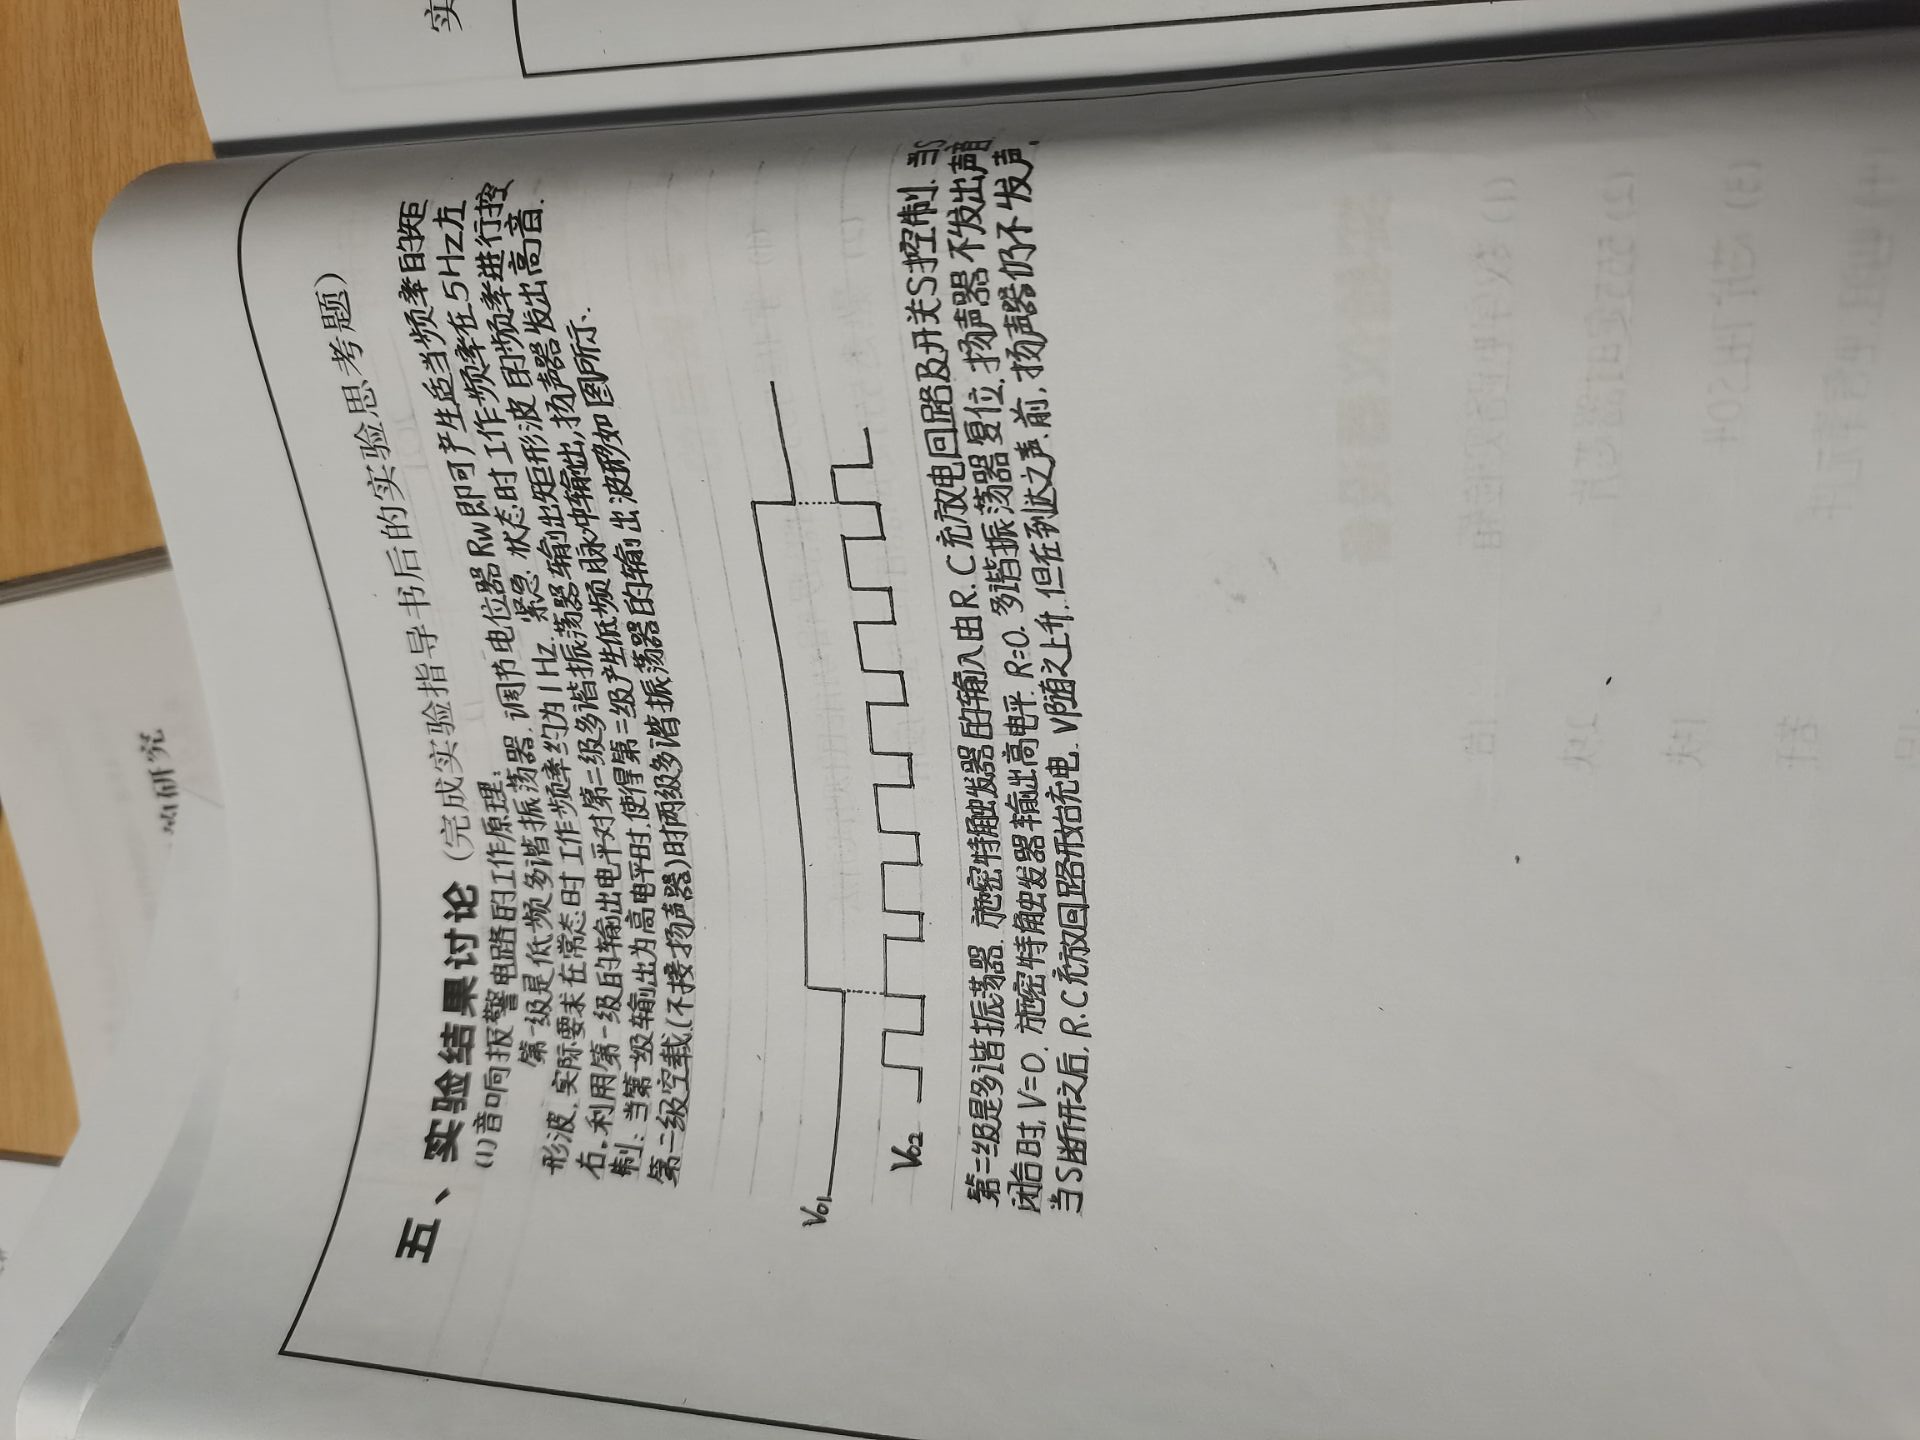 的研究
五、实验结果讨论(完成实验指导书后的实验思考题)
(1)音响报警电路的工作原理:
第一级是低频多谐振荡器,调节电位器Rw即可产生适当频率的矩
形波,实际要求在常态时工作频率约为1Hz.紧急状态时工作频率在5Hz左
右。利用第一级的输出电平对第二级多谐振荡器输出矩形波的频率进行控
制:当第一级输出为高电平时,使得第二级产生低频脉冲输出,扬声器发出高音.
第二级空载(不接扬声器)时两级多谐振荡器的输出波形如图所示.
Vo1
Vo2
第二级是多谐振荡器.施密特触发器的输入由R.C充放电回路及开关S控制.当S
闭合时,V=0.施密特触发器输出高电平.R=0.多谐振荡器复位.扬声器不发出声音
当S断开之后,R.C充放回路开始充电.V随之上升.但在到达之声前,扬声器仍不发声.
实